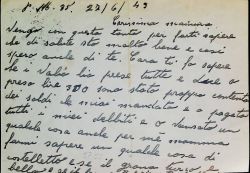 22/6/43
Carissima mamma
Vengo con questa tanto per farti sapere
che di salute sto molto bene e così
spero anche di te. Cara ti fo sapere
che i vaglia lio presi tutte e
preso lire 300 sono stato proppio contento
dei soldi che miai mandato e o pagato
tutti i miei debbiti e o
qualche cosa anche per me mamma
farmi sapere un qualche cosa di
e se il grano